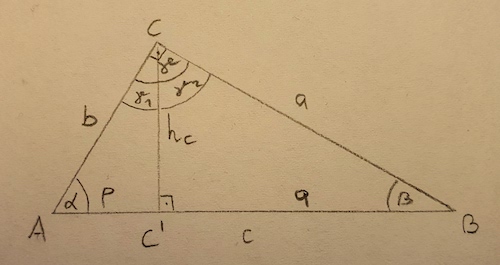 C
γ
γ₁ γ₂
b
a
h_c
α
p
q
β
A
C'
c
B